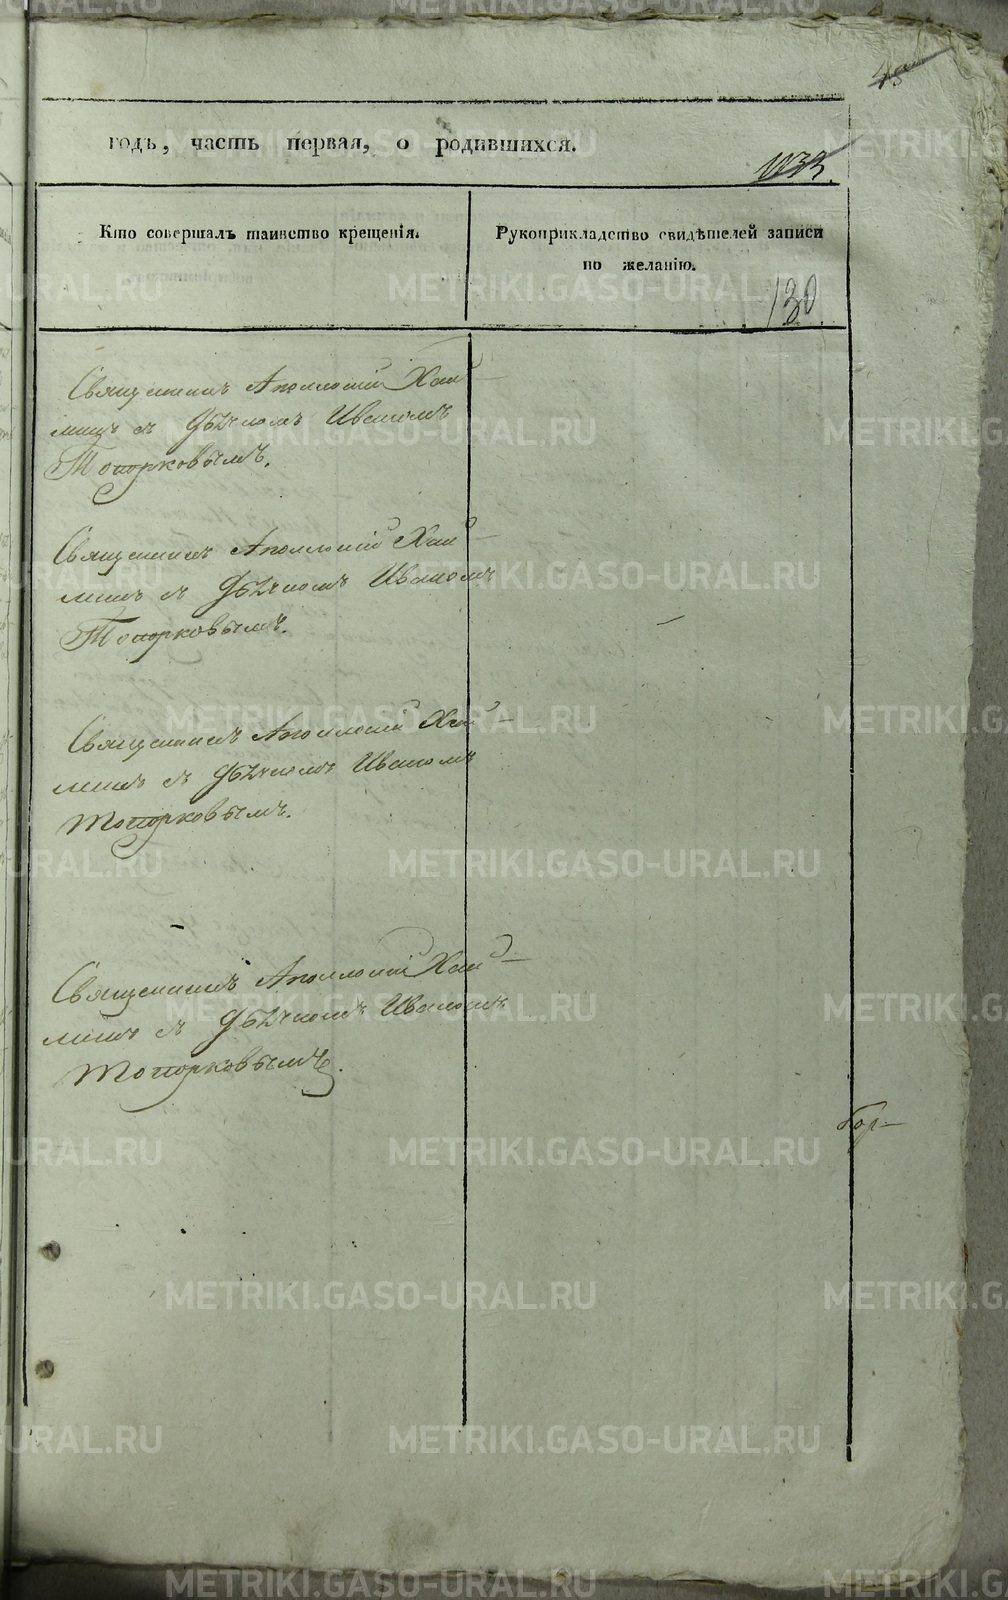 45
годъ, часть первая, о родившихся.
1033.
Кто совершалъ таинство крещенія.
Рукоприкладство свидѣтелей записи
по желанію.
130
Священникъ Аполлоній
съ Дьячкомъ Иваномъ
Топорковымъ.
Священникъ Аполлоній
съ Дьячкомъ Иваномъ
Топорковымъ.
Священникъ Аполлоній
съ Дьячкомъ Иваномъ
Топорковымъ.
Священникъ Аполлоній
съ Дьячкомъ Иваномъ
Топорковымъ.
METRIKI.GASO-URAL.RU